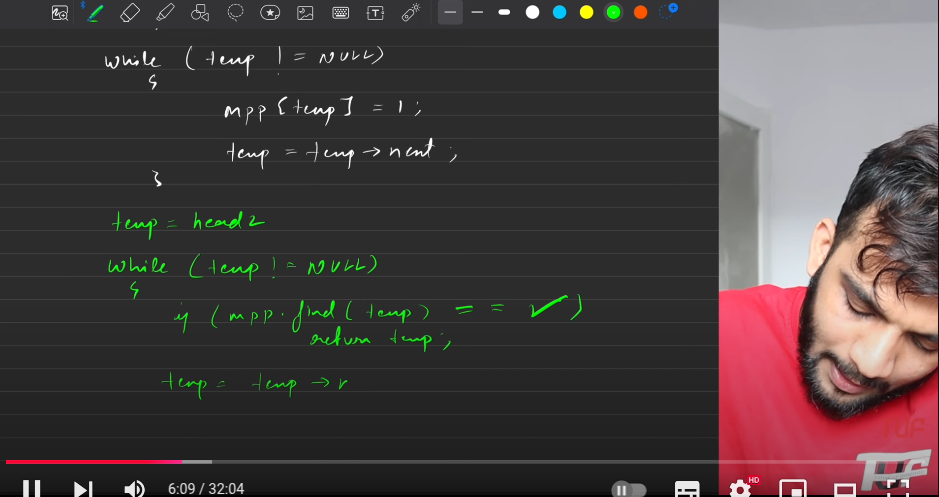 while (temp != NULL)
{
mpp[temp] = 1;
temp = temp → next;
}
temp = head2
while (temp != NULL)
{
if (mpp.find(temp) == ✓)
return temp;
temp = temp → n
TUF
TUF
6:09 / 32:04
HD